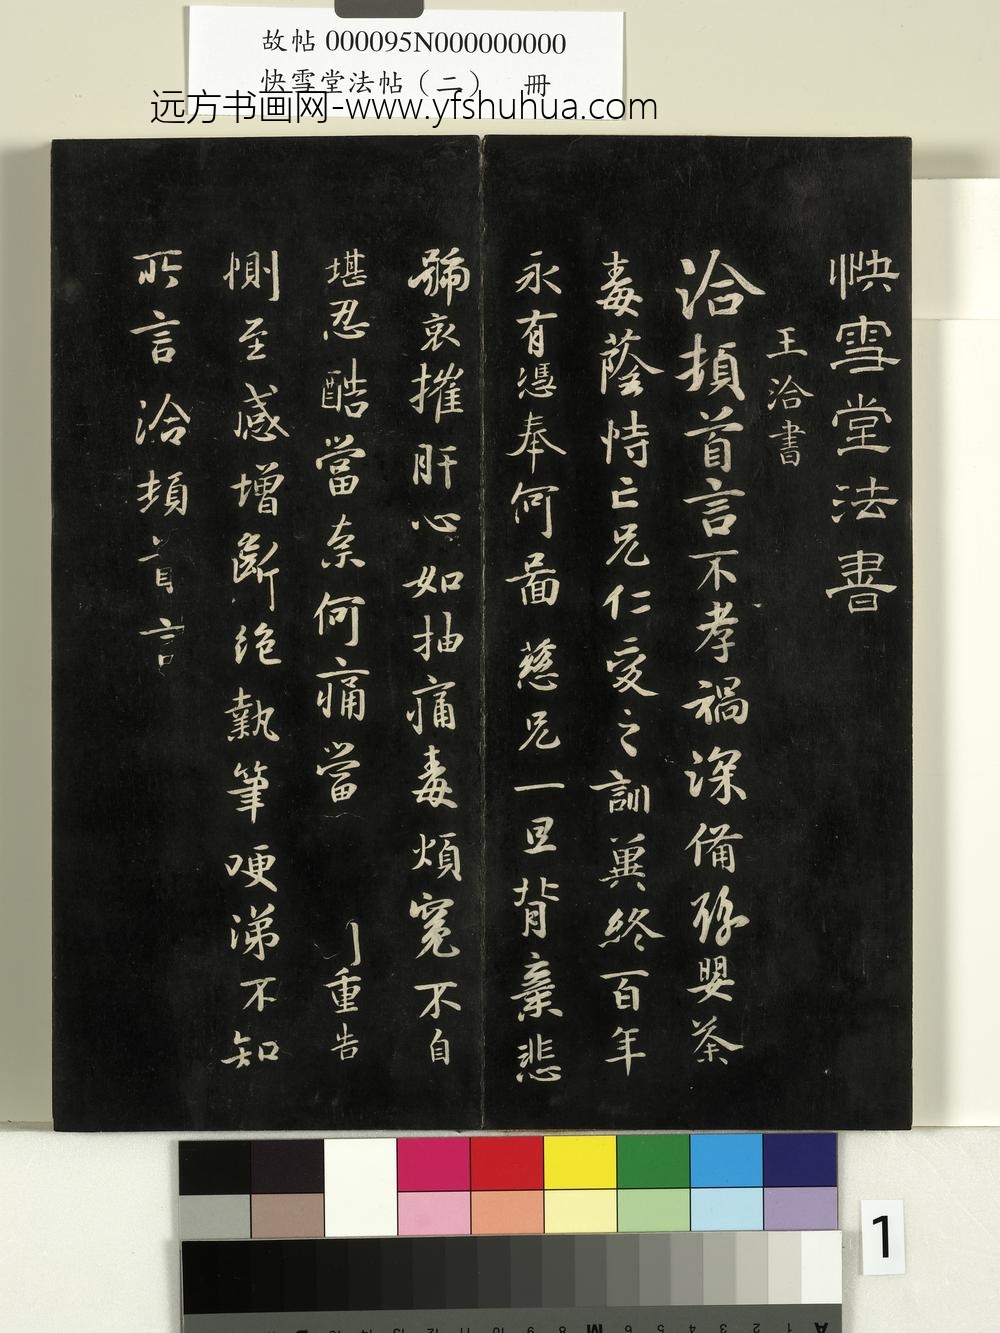 故帖 000095N000000000
快雪堂法帖（二） 冊
远方书画网-www.yfshuhua.com
快雪堂法書
王洽書
洽頓首言不孝禍深備豫嬰荼
毒蔭恃亡兄仁愛之訓冀終百年
永有憑奉何圖慈兄一旦背棄悲
號哀摧肝心如抽痛毒煩冤不自
堪忍酷當奈何痛當 重告
惻至感增斷絕執筆哽涕不知
所言洽頓首言
1